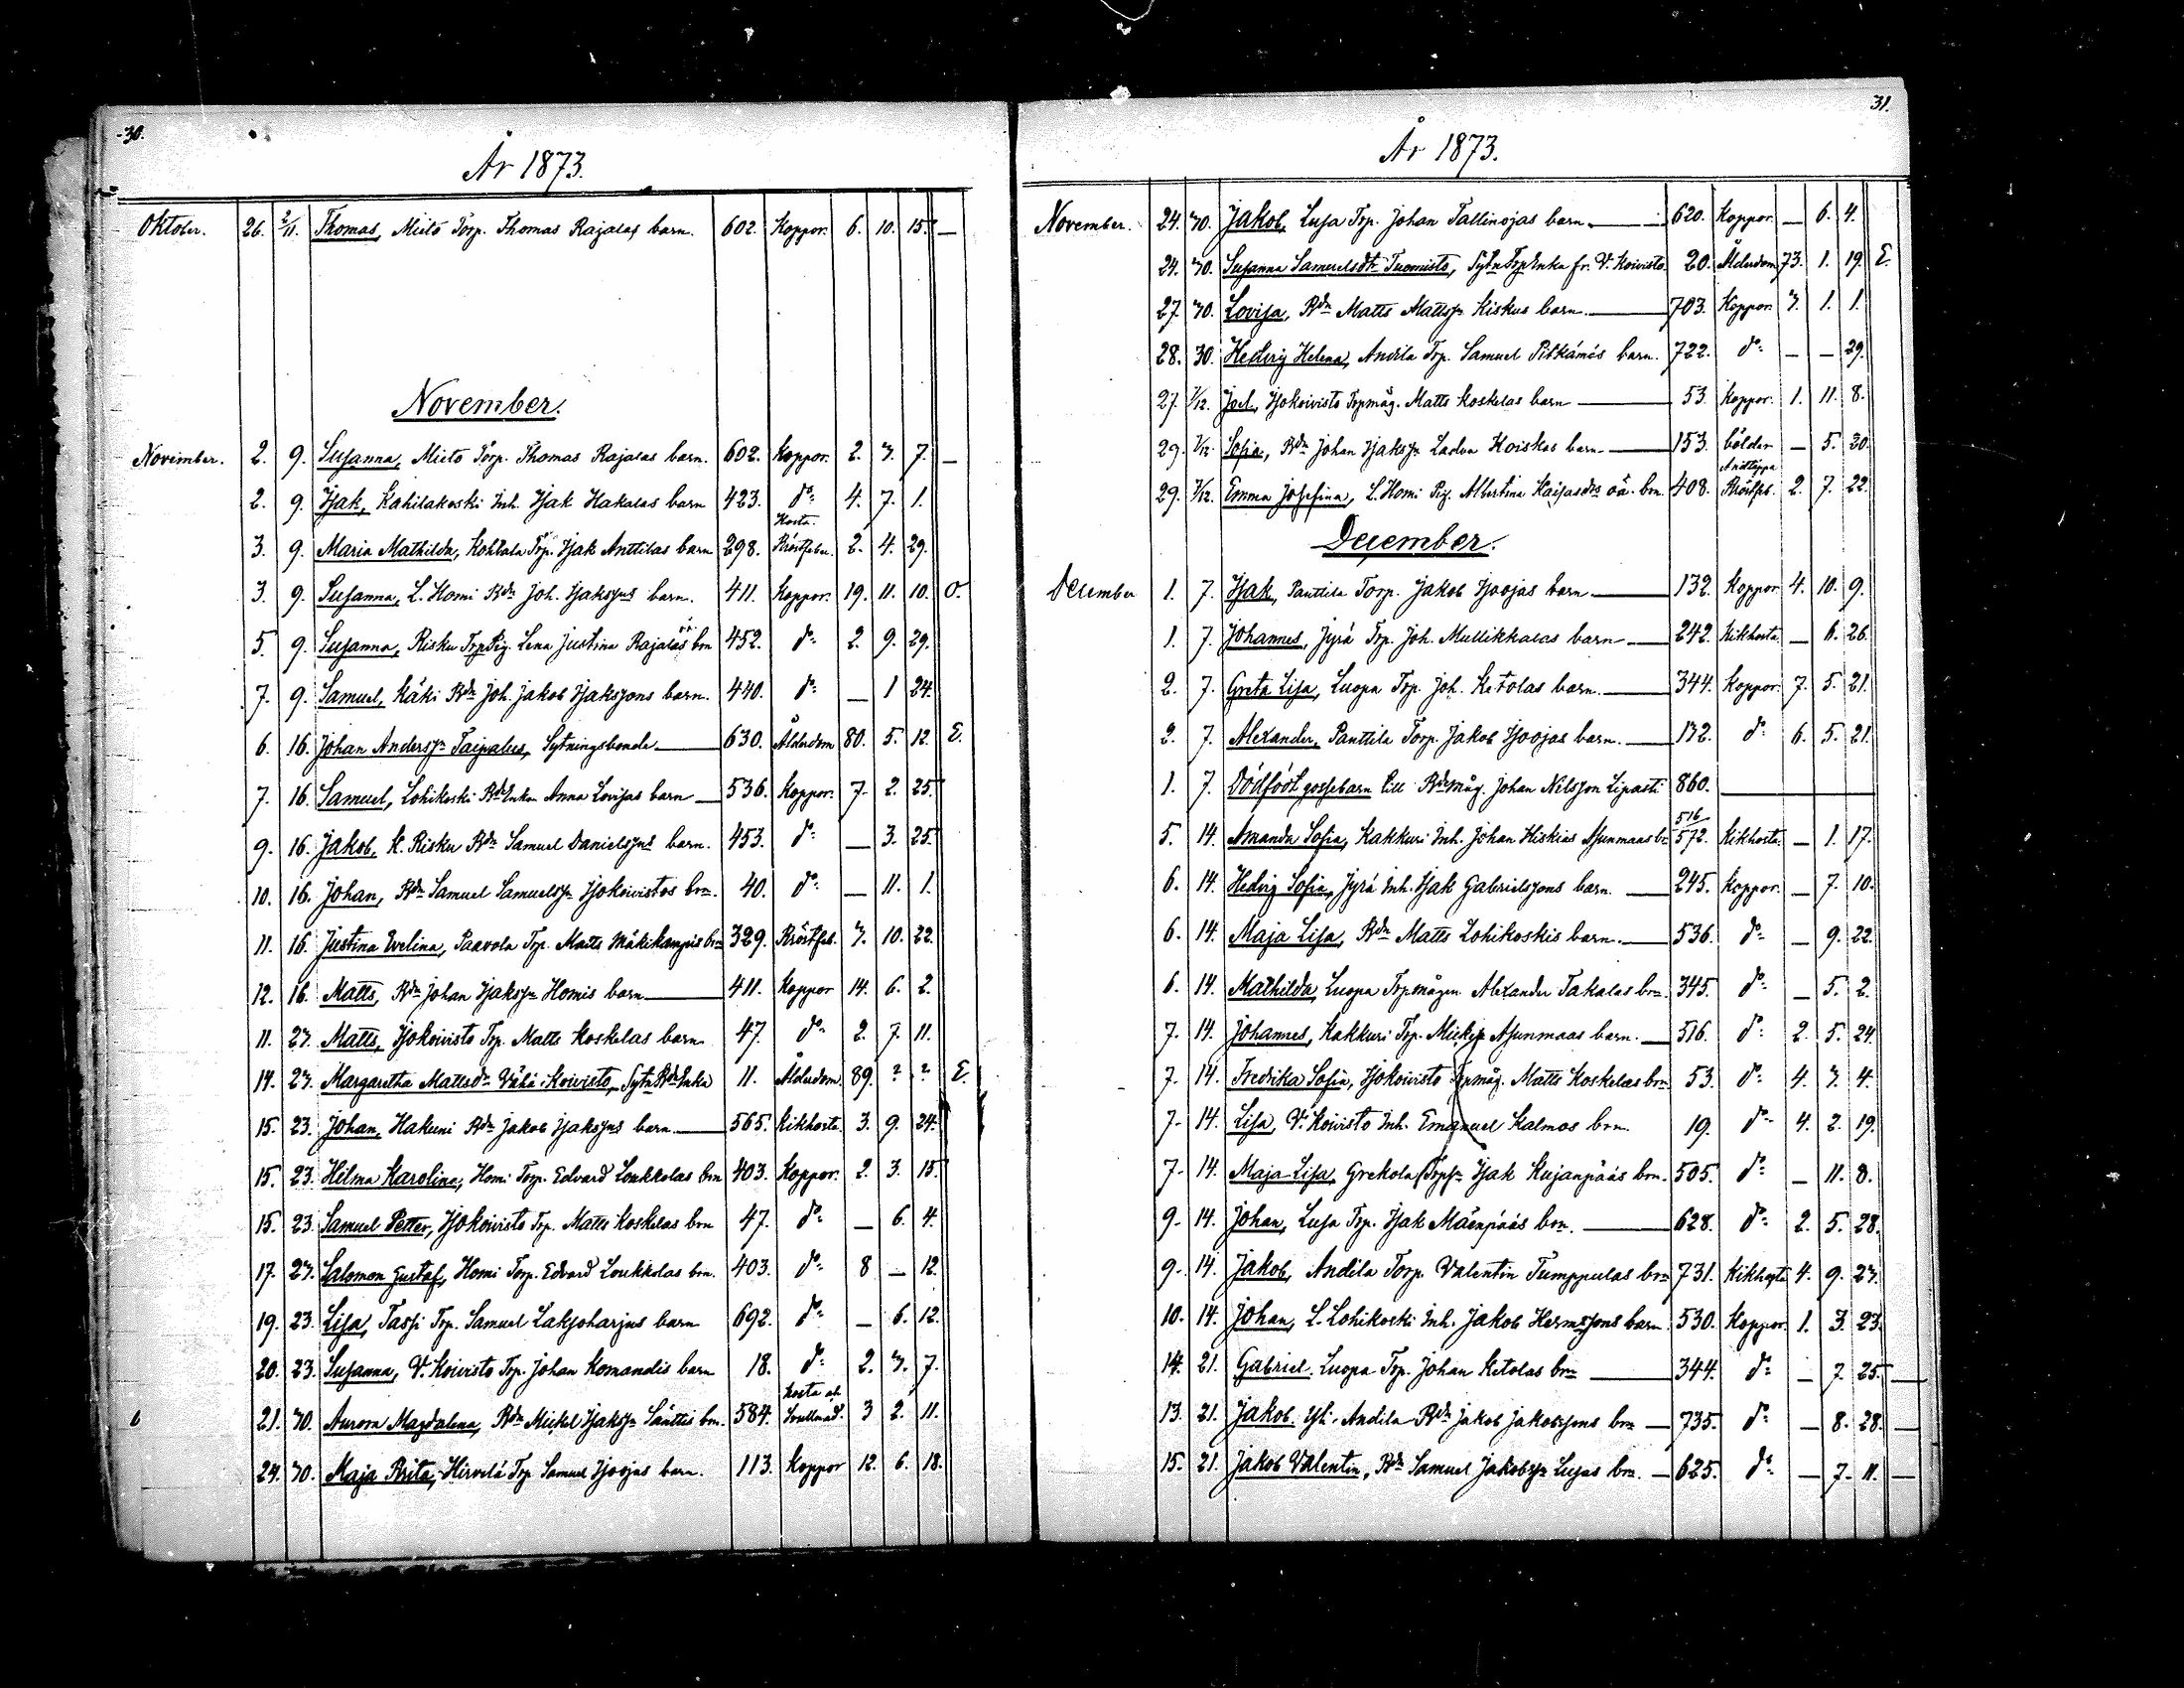 30.
År 1873.
Oktober. 26. 2/11. Thomas, Mieto Torp. Thomas Rajalas barn. 602. Koppor. 6. 10. 15. —
November.
November. 2. 9. Susanna, Mieto Torp. Thomas Rajalas barn. 602. Koppor. 2. 3. 7. —
2. 9. Isak, Kahilakoski Inh. Isak Hakalas barn 423. do: 4. 7. 1.
3. 9. Maria Mathilda, Kohtala Trp. Isak Anttilas barn 298. Hosta. Bröstfeber. 2. 4. 29.
3. 9. Susanna, L. Homi Bdn Joh. Isaksjns barn. 411. Koppor. 19. 11. 10. O.
5. 9. Susanna, Risku TrpPig. Lena Justina Rajalas oä. brn 452. do: 2. 9. 29.
7. 9. Samuel, Käki Bdn Joh. Jakob Isakssons barn. 440. do: — 1 24.
6. 16. Johan Andersjn Taipalus, Sytningsbonde — 630. Ålderdom 80. 5. 12. E.
7. 16. Samuel, Lohikoski BdeEnkan Anna Lovisas barn — 536. Koppor. 7. 2. 25.
9. 16. Jakob, K. Risku Bdn Samuel Danielsjns barn. 453. do: — 3. 25.
10. 16. Johan, Bdn Samuel Samuelsjn Isokoivistos brn. 40. do: — 11. 1.
11. 16. Justina Evelina, Paavola Trp. Matts Mäkikangas brn 329. Bröstfeb. 3. 10. 22.
12. 16. Matts, Bdn Johan Isaksjn Homis barn — 411. Koppor 14. 6. 2.
11. 23. Matts, Isokoivisto Trp. Matts Koskelas barn 47. do: 2. 7. 11.
14. 23. Margaretha Mattsdr Vähä-Koivisto, SytnBdeEnka 11. Ålderdom 89. ? ? E.
15. 23. Johan, Hakuni Bdn Jakob Isaksjns barn — 565. Kikhosta. 3. 9. 24.
15. 23. Hilma Karolina, Homi Torp. Edvard Loukkolas brn 403. Koppor. 2. 3. 15.
15. 23. Samuel Petter, Isokoivisto Trp. Matts Koskelas brn 47. do: — 6. 4.
17. 23. Salomon Gustaf, Homi Torp. Edvard Loukkolas brn. 403. do: 8 — 12.
19. 23. Lisa, Tassi Trp. Samuel Laksoharjus barn 692. do: — 6. 12.
20. 23. Susanna, V. Koivisto Trp. Johan Komandis barn 18. do: 2. 3. 7.
21. 30. Aurora Magdalena, Bdn Mickel Isaksjn Sänttis brn. 584. Hosta o. Svullnad. 3 2. 11.
24. 30. Maja Brita, Hirvelä Trp Samuel Isoojas barn. 113. Koppor 12. 6. 18.
31.
År 1873.
November. 24. 30. Jakob, Lusa Trp. Johan Tallinojas barn. — 620. Koppor. — 6. 4.
24. 30. Susanna Samuelsdtr Tuomisto, SytnTrpEnka fr. V. Koivisto. 20. Ålderdom 73. 1. 19. E.
27. 30. Lovisa, Bdn Matts Mattsjn Kiskus barn. — 703. Koppor. 3. 1. 1.
28. 30. Hedvig Helena, Andila Trp. Samuel Pitkämäs barn. 722. do: — — 29.
27. 7/12. Joel, Isokoivisto Trpmåg. Matts Koskelas barn — 53. Koppor. 1. 11. 8.
29. 7/12. Sofia, Bdn Johan Isaksjn Ladva Koiskas barn — 153. bölder — 5. 30.
29. 7/12. Emma Josefina, L. Homi Pig. Albertina Kaisasdrs oä. brn. 408. Andtäppa Bröstfeb. 2. 7. 22.
December.
December 1. 7. Isak, Panttila Torp. Jakob Isoojas barn — 132. Koppor 4. 10. 9.
1. 7. Johannes, Jyrä Trp. Joh. Mullikkalas barn — 242. Kikhosta. — 6. 26.
2. 7. Greta Lisa, Luopa Trp. Joh. Ketolas barn. — 344. Koppor. 7. 5. 21.
2. 7. Alexander, Panttila Torp. Jakob Isoojas barn. — 132. do: 6. 5. 21.
1. 7. Dödfödt gossebarn till Bdemåg. Johan Nilsson Lipasti 860. —
5. 14. Amanda Sofia, Kakkuri Inh. Johan Hiskias Asunmaas brn 516 572. Kikhosta. — 1. 17.
6. 14. Hedvig Sofia, Jyrä Inh. Isak Gabrielssons barn. — 245. Koppor. — 7. 10.
6. 14. Maja Lisa, Bdn Matts Lohikoskis barn. — 536. do: — 9. 22.
6. 14. Mathilda, Luopa Trpmågen Alexander Takalas brn. 345. do: — 5. 2.
7. 14. Johannes, Kakkuri Trp. Mickjn Asunmaas barn. — 516. do: 2. 5. 24.
7. 14. Fredrika Sofia, Isokoivisto Trpmåg. Matts Koskelas brn 53. do: 4. 3. 4.
7. 14. Lisa, V. Koivisto Inh. Emanuel Kalmas brn. 19. do: 4. 2. 19.
7. 14. Maja-Lisa, Grekola Trpsn Isak Kujanpääs brn. 505. do: — 11. 8.
9. 14. Johan, Lusa Trp. Isak Mäenpääs brn. — 628. do: 2. 5. 28.
9. 14. Jakob, Andila Torp. Valentin Tumppulas brn 731. Kikhosta 4. 9. 23.
10. 14. Johan, L. Lohikoski Inh. Jakob Hermssons barn. 530. Koppor. 1. 3. 23.
14. 21. Gabriel, Luopa Trp. Johan Ketolas brn — 344. do: — 7. 25. —
13. 21. Jakob, Yli-Andila Bdn Jakob Jakobssons brn — 735. do: — 8. 28. —
15. 21. Jakob Valentin, Bdn Samuel Jakobsjn Lusas brn. — 625. do: — 7. 11. —